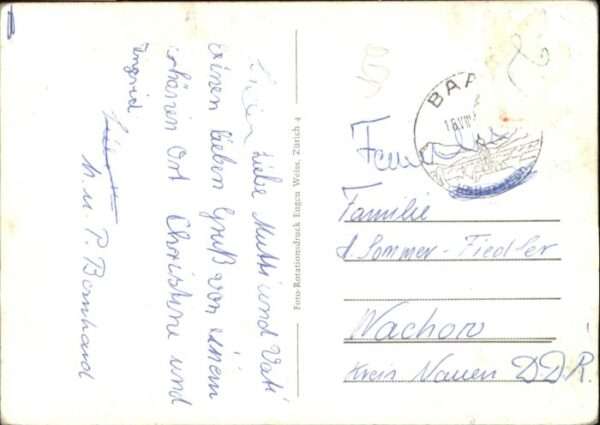 Liebe Mutti und Vati
einen lieben Gruß von einem
schönen Ort Christine und
Ingrid
h. u. P. Bernhard
Foto-Rotationsdruck Eugen Weiss, Zürich 4
BAA
Familie
Sommer-Fiedler
Wachow
Kreis Nauen D.D.R.